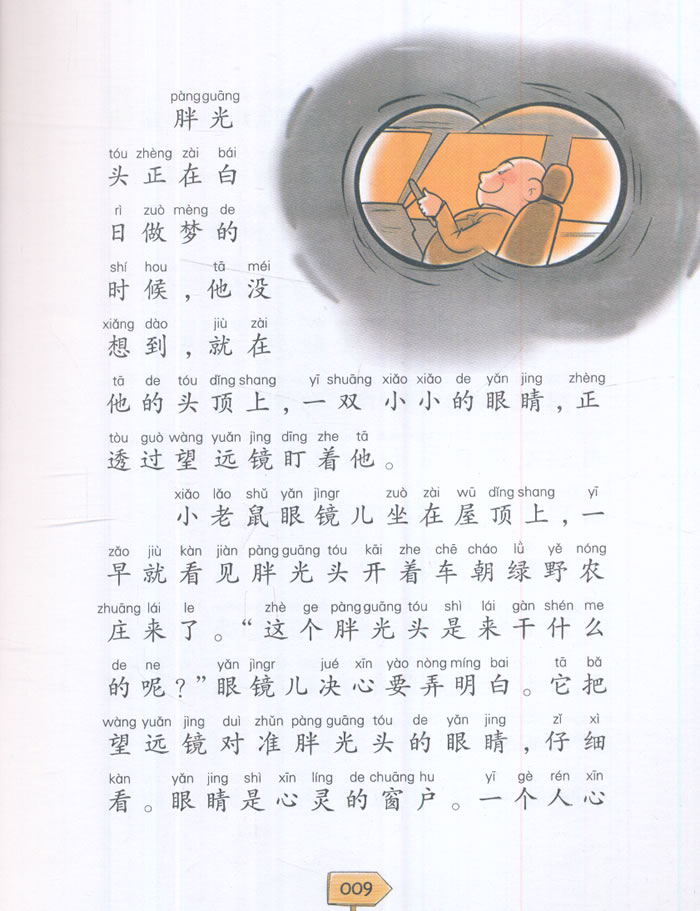 pàng guāng
胖光
tóu zhèng zài bái
头正在白
rì zuò mèng de
日做梦的
shí hou tā méi
时候，他没
xiǎng dào jiù zài
想到，就在
tā de tóu dǐng shang yī shuāng xiǎo xiǎo de yǎn jing zhèng
他的头顶上，一双小小的眼睛，正
tòu guò wàng yuǎn jìng dīng zhe tā
透过望远镜盯着他。
xiǎo lǎo shǔ yǎn jìngr zuò zài wū dǐng shang yī
小老鼠眼镜儿坐在屋顶上，一
zǎo jiù kàn jiàn pàng guāng tóu kāi zhe chē cháo lǜ yě nóng
早就看见胖光头开着车朝绿野农
zhuāng lái le zhè ge pàng guāng tóu shì lái gàn shén me
庄来了。“这个胖光头是来干什么
de ne yǎn jìngr jué xīn yào nòng míng bai tā bǎ
的呢？”眼镜儿决心要弄明白。它把
wàng yuǎn jìng duì zhǔn pàng guāng tóu de yǎn jing zǐ xì
望远镜对准胖光头的眼睛，仔细
kàn yǎn jing shì xīn líng de chuāng hu yī gè rén xīn
看。眼睛是心灵的窗户。一个人心
009